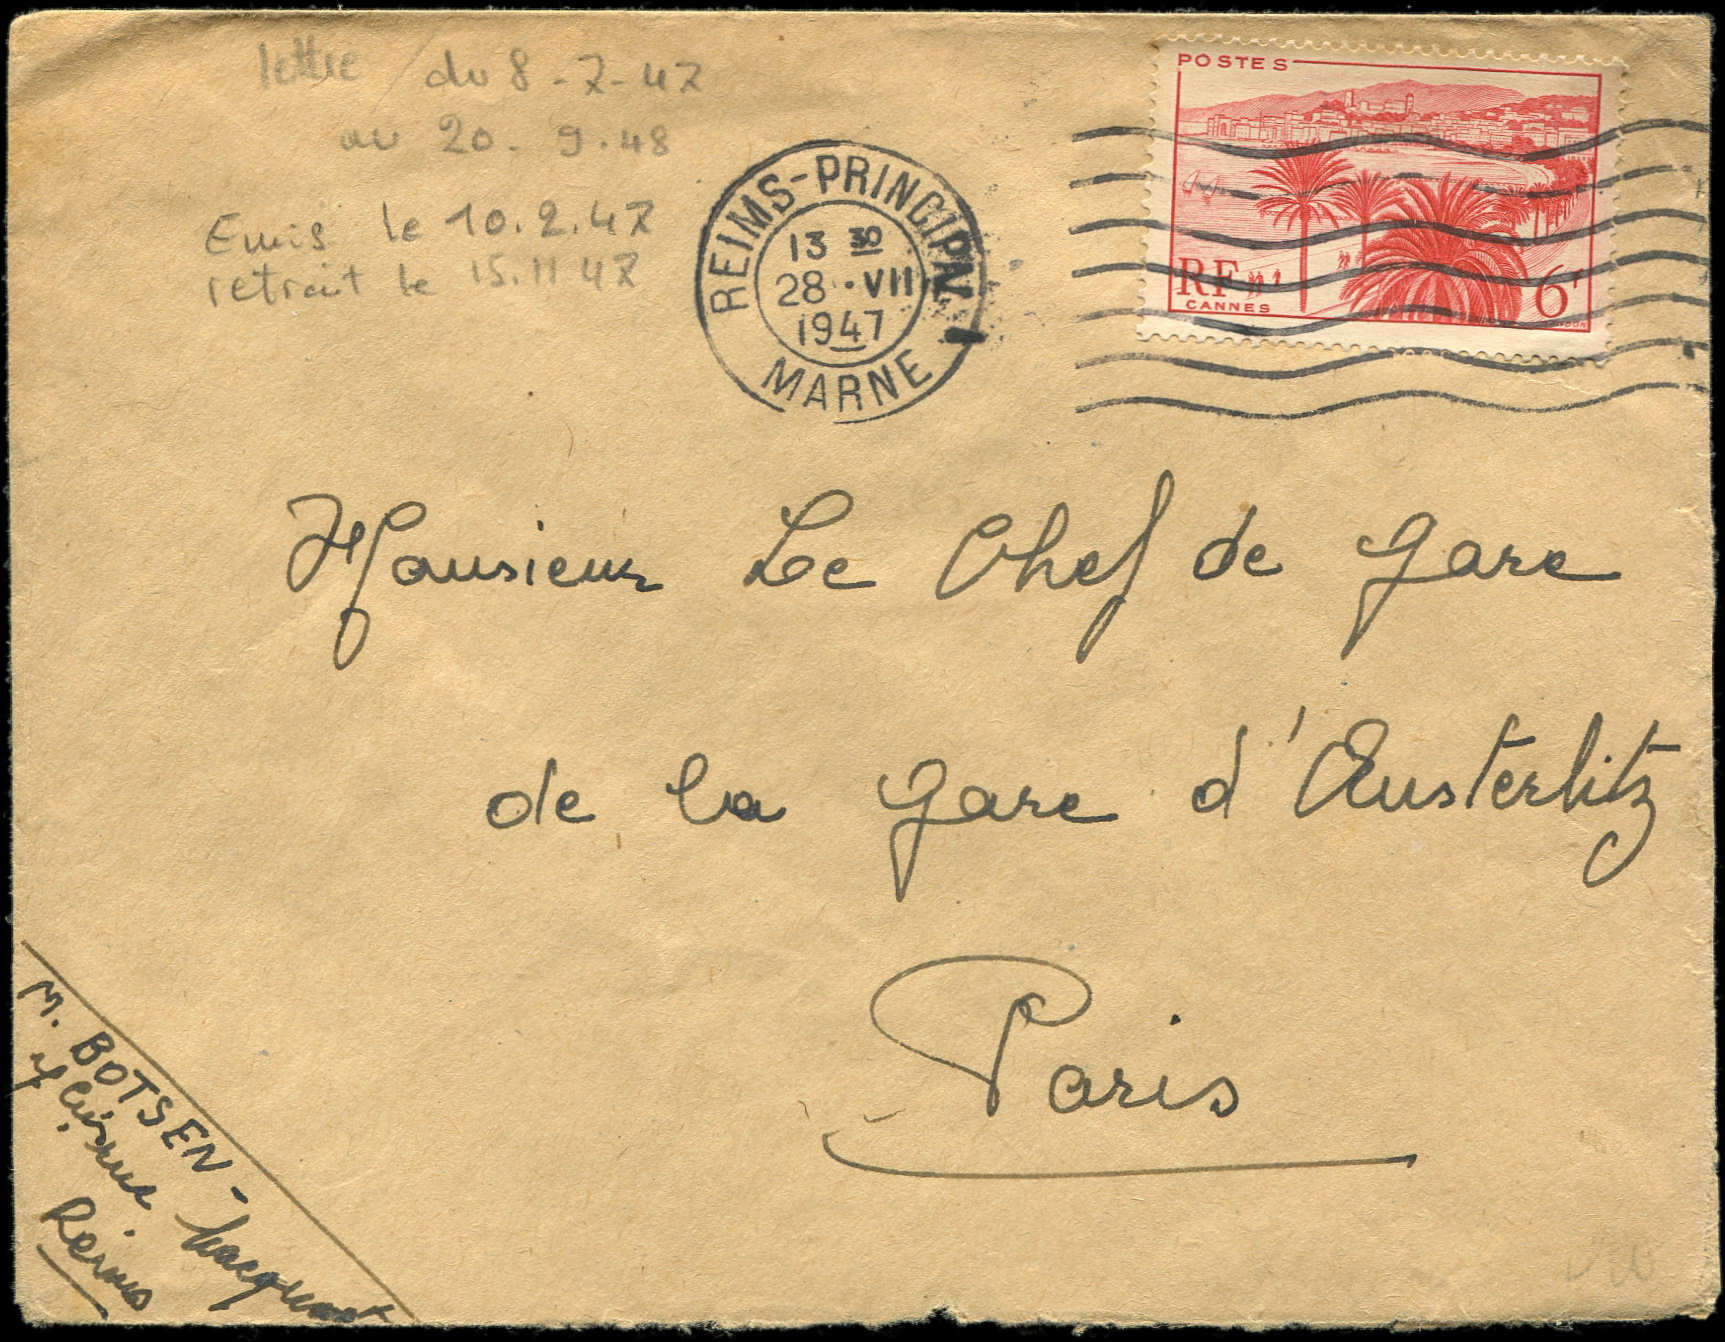 lettre du 8-7-47
au 20.9.48
Emis le 10.2.47
retrait le 15.11 47
REIMS-PRINCIPAL
13 30
28 VII
1947
MARNE
POSTES
RF
6F
CANNES
Monsieur Le Chef de Gare
de la Gare d'Austerlitz
Paris
M. BOTSEN -
Reims